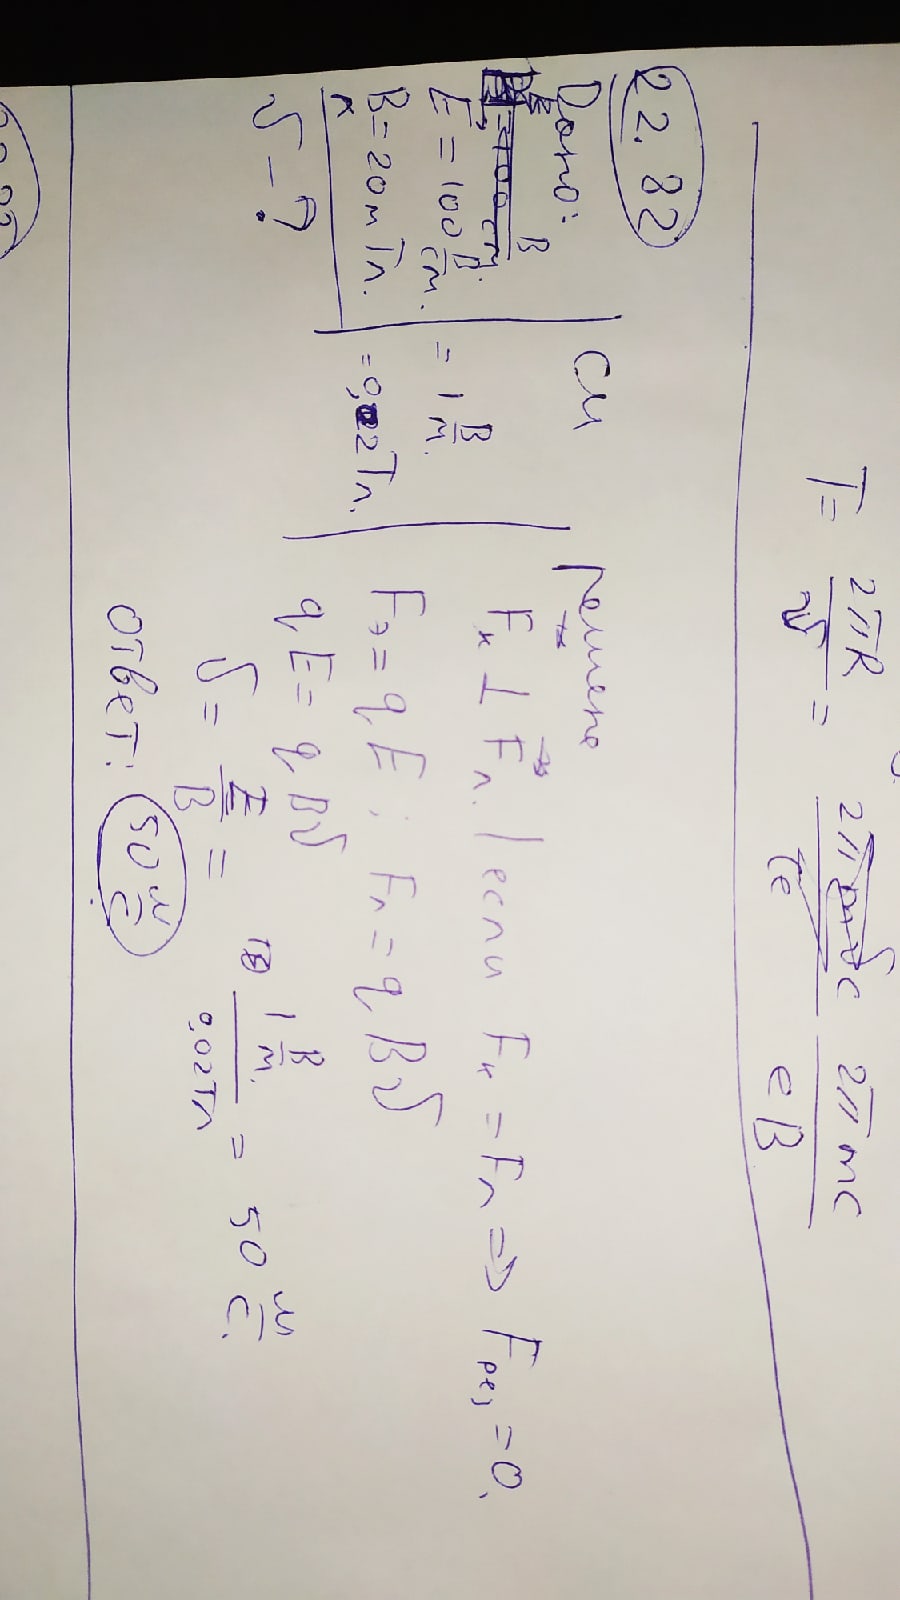 T = 2πR/v = 2πmvc/ve 2πmc/eB
22.82
Дано:
E = 100 В/см.
B = 20 мТл.
v - ?
СИ
= 1 В/м.
= 0,02 Тл.
Решение
Fк ⊥ Fл. | если Fк = Fл => Fрез = 0.
Fэ = qE; Fл = qBv
qE = qBv
v = E/B = 1 В/м. / 0,02 Тл = 50 м/с.
Ответ: 50 м/с